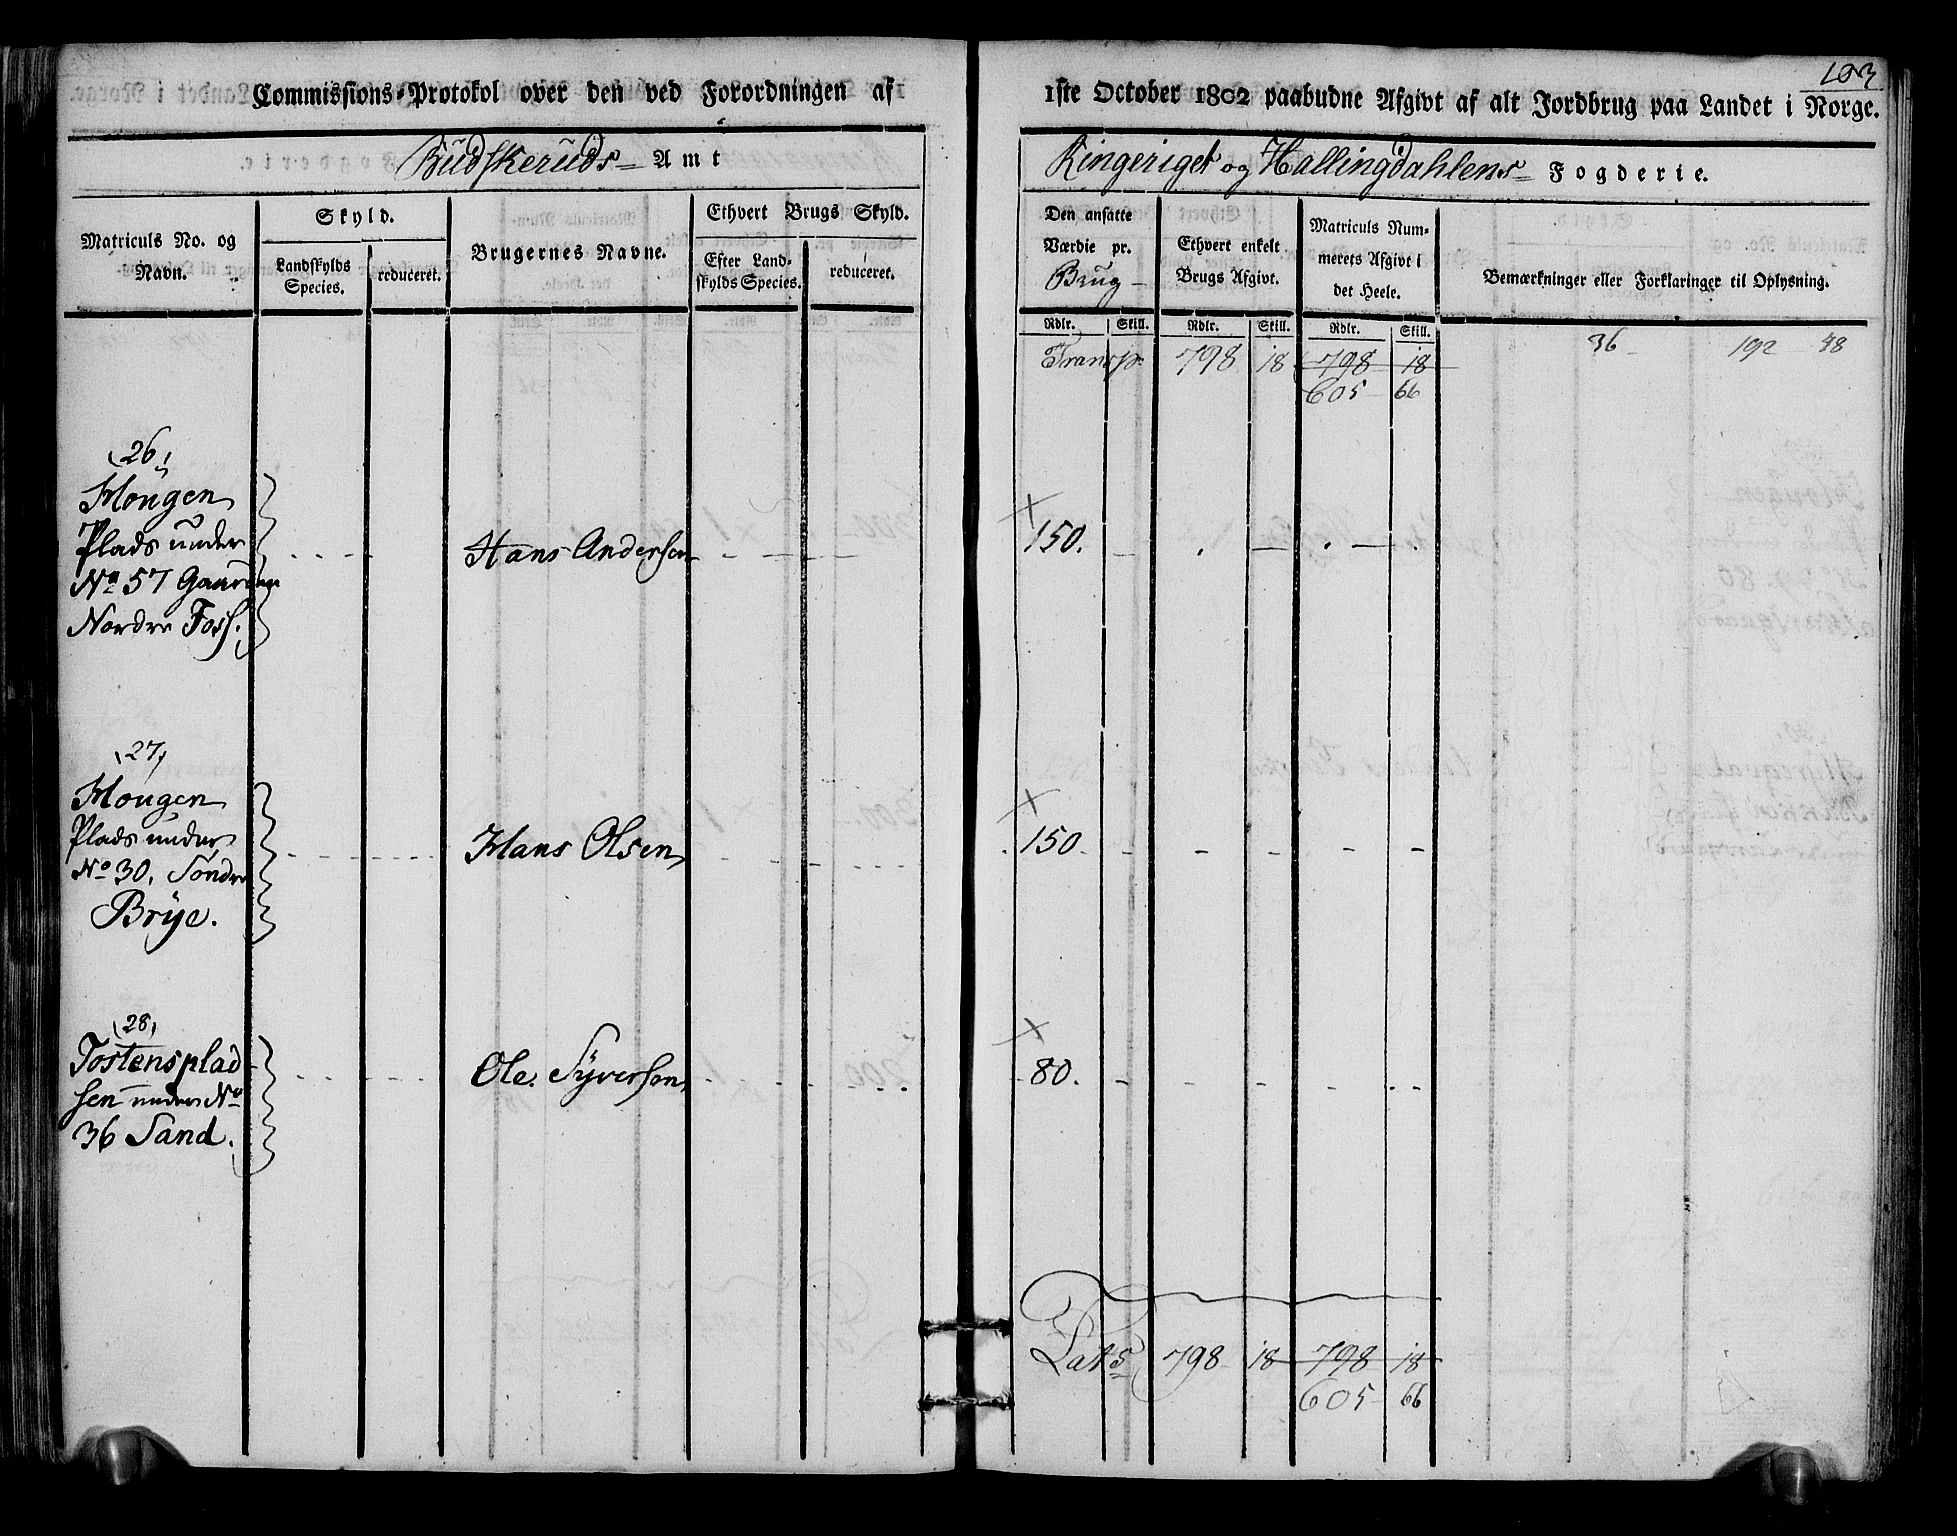 103
Commissions-Protokol over den ved Forordningen af 1ste October 1802 paabudne Afgivt af alt Jordbrug paa Landet i Norge.
Budskeruds Amt
Ringeriget og Hallingdahlens Fogderie.
Matriculs No. og Navn.
Skyld.
Landskylds Species.
reduceret.
Brugernes Navne.
Ethvert Brugs Skyld.
Efter Landskylds Species.
reduceret.
Den ansatte Værdie pr. Brug
Ethvert enkelt Brugs Afgivt.
Matriculs Nummerets Afgivt i det Heele.
Bemærkninger eller Forklaringer til Oplysning.
Rdlr. Skill. Rdlr. Skill. Rdlr. Skill.
Transp. 798 18 798 18 36 192 48
605 66
26
Hougen
Plads under
No 57 Gaarden
Nordre Foss.
Hans Andersen
150.
27
Hougen
Plads under
No 30, Söndre
Brye.
Hans Olsen
150
28
Tostensplad
sen under No
36 Sand.
Ole Syversen
80.
Lats 798 18 798 18
605 66